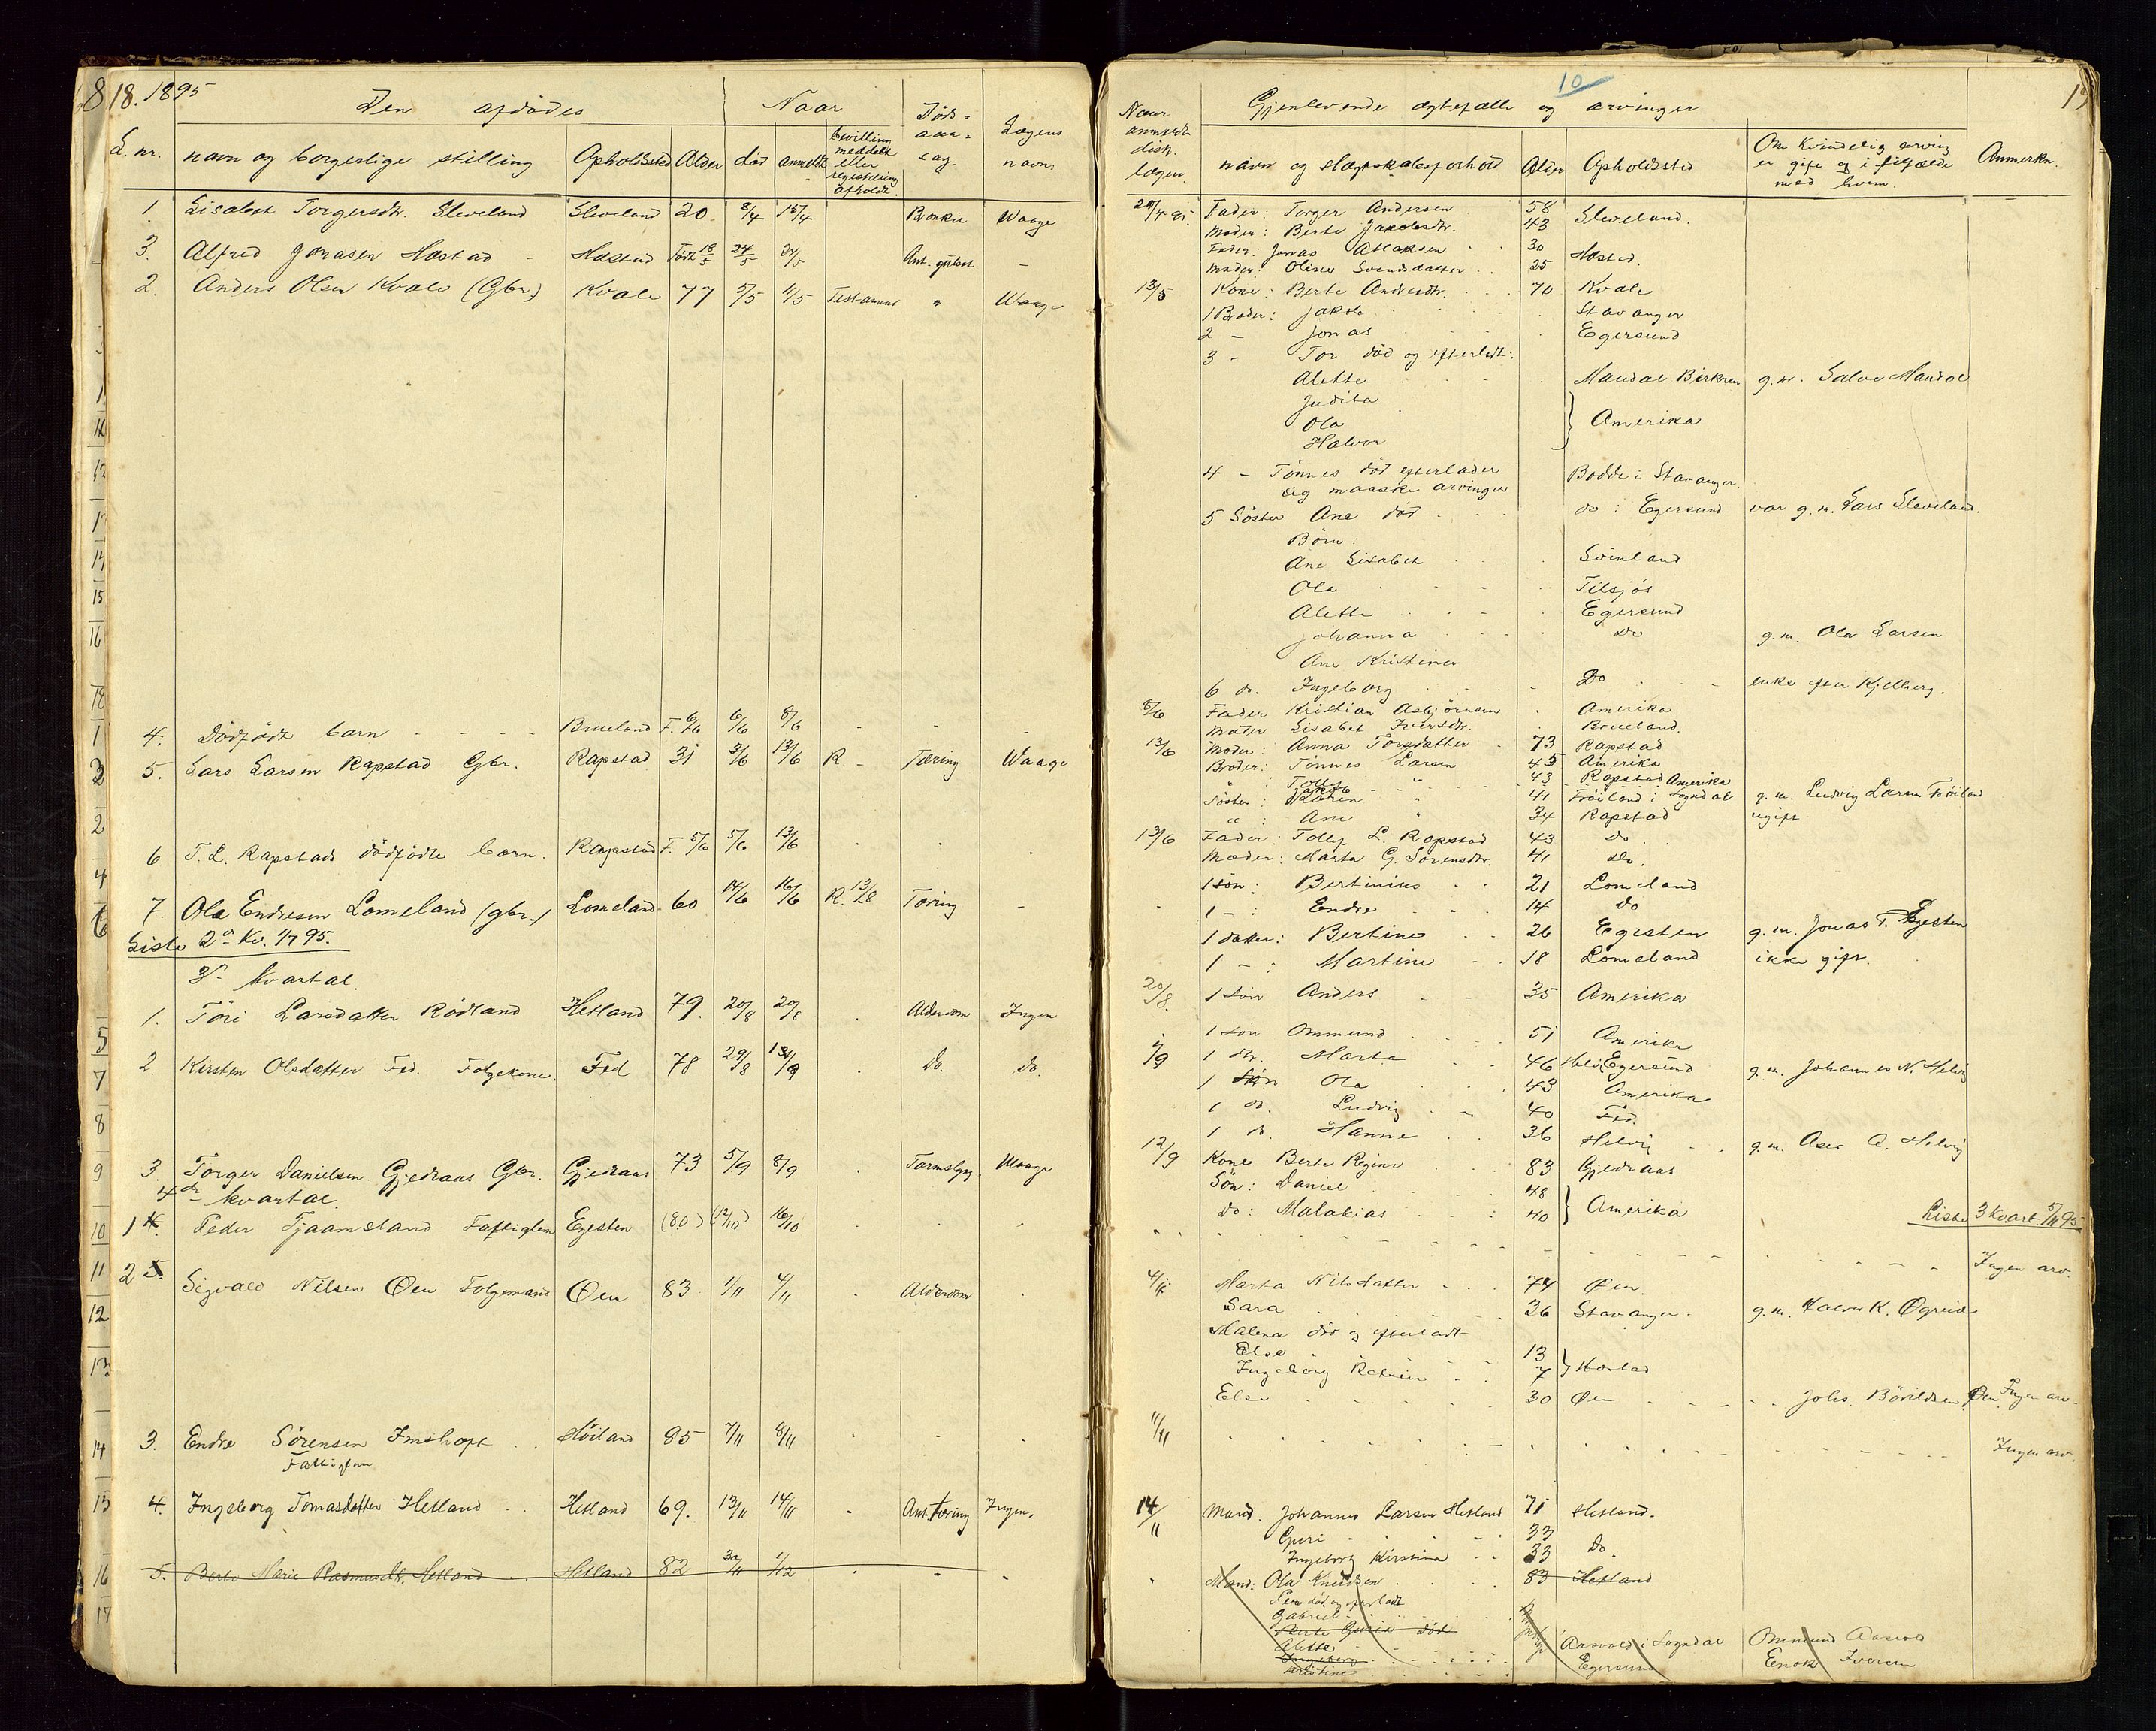 18. 1895
Den afdødes
Naar
Døds-
aar-
sag.
Lægens
navn.
L. nr.
navn og borgerlige stilling
Opholdssted
Alder
død
anmeldt
bevilling
meddelt
eller
registrering
afholdt.
1. Lisabet Torgersdtr. Sleveland Sleveland 20. 8/4 15/4 Waage
3. Alfred Jonasen Hæstad - Hæstad Født 18/5 24/5 –
2. Anders Olsen Kvale (Gbr.) Kvale 77 5/5 11/5 " Waage
4. Dødfødt barn - - - - Brueland F. 6/6 6/6 8/6 - -
5. Lars Larsen Rapstad Gbr. Rapstad 31 3/6 13/6 R. - Tæring Waage
6 T. L. Rapstads dødfødte barn. Rapstad F. 5/6 5/6 13/6 . . .
7. Ola Endresen Lomeland (gbr.) Lomeland 60 14/6 16/6 R. 13/8 Tæring –
Liste 2det Kv. 1/7 95.
3die kvartal.
1. Töri Larsdatter Rödland Hetland 79. 20/8 20/8 . Alderdom Ingen
2. Kirsten Olsdatter Fed. Folgekone. Fed 78 29/8 . Do. Do.
3. Torger Danielsen Gjedraas Gbr. Gjedraas 73 5/9 8/9 . Waage
4de kvartal.
1 Peder Tjaamsland Fattiglem Egesten (80) (12/10) 16/10
2 Sigvald Nilsen Øen Folgemand Øen 83 1/11 4/11 . Alderdom .
3. Endre Sörensen . . Höiland 85 7/11 8/11 . - -
Fattiglem
4. Ingeborg Tomasdatter Hetland . . Hetland 69. 13/11 14/11 . Ant. tæring Ingen.
5. Berte Marie Rasmusdt. Hetland . . Hetland 82 30/11 1/12 . . .
10
19
Naar
anmeldt
distr.
lægen.
Gjenlevende ægtefælle og arvinger
navn og slægtskabsforhold
Alder
Opholdssted
Om kvindelig arving
er gift og i tilfælde
med hvem.
Anmerkn.
20/4 95. Fader: Torger Andersen 58 Sleveland.
Moder: Berte Jakobsdtr. 43
Fader: Jonas Atlaksen 30 Hæstad.
Moder: Oline Svendsdatter . . 25
13/5 Kone: Berte Andersdtr. 70 Kvale
1 Broder: Jakob Stavanger
2 – Jonas Egersund
3 – Tor død og efterladt:
Alette Mandal Birkrem g.m. Salve Mandal
Judita
Ola Amerika
Halvor
4 – Tönnes död efterlader Bodde i Stavanger.
sig maaske arvinger
5 Söster Ane död do i Egersund var g.m. Lars Sleveland.
Börn:
Ane Lisabet Svinland
Ola Tilsjös
Alette Egersund
Johanna Do g.m. Ola Larsen
Ane Kristine
6 do. Ingeborg Do enke efter Kjelberg.
8/6 Fader Kristian Asbjörnsen . Amerika
Moder Lisabet Iversdtr. . Brueland.
13/6 Moder: Anna Torsdatter 73 Rapstad
Broder: Tönnes Larsen 45 Amerika
" Tollef " 43 Rapstad
Jakob Amerika
Söster: Karen " 41 Fröiland i Sogndal g.m. Ludvig Larsen Fröiland
" Ane " 34 Rapstad ugift
13/6 Fader: Tollef L. Rapstad 43 Do.
Moder: Marta G. Sörensdtr. 41 Do.
1 sön: Bertinius 21 Lomeland
1 – : Endre 14 Do
1 datter: Bertine 26 Egesten g.m. Jonas T. Egesten
1 – : Martine 18 Lomeland ikke gift.
20/8. 1 sön Anders 35 Amerika
1 sön Ommund 51 Amerika
1/9 1 dtr. Marta 46 Helvig Egersund g.m. Johannes N. Helvig
1 Sön Ola 43 Amerika
1 do. Ludvig 40 Fed.
1 do. Hanne 36 Helvig g.m. Aser A. Helvig
12/9 Kone Berte Regine 83 Gjedraas
Sön: Daniel 48
Amerika
Do: Malakias 40
Liste 3 kvart. 5/11 95.
Ingen arv.
4/11 Marta Nilsdatter 74 Øen.
Sara 36 Stavanger. g.m. Halvor K. Øgreid
Malena död og efterladt
Else 13 Hæstad
Ingeborg 7
Else 30 Øen Johs. Øen Ingen arv.
11/11 Ingen arv.
14/11 Mand. Johannes Larsen Hetland 71 Hetland.
Guri 33 Do.
Ingeborg Kirstine 33
Mand: Ola Knudsen 83 Hetland
Per död og efterladt
Gabriel
Berte Guria död
Alette Aasvold i Sogndal Ommund Aasvold
Ingeborg Egersund Enok Iversen
Kristine